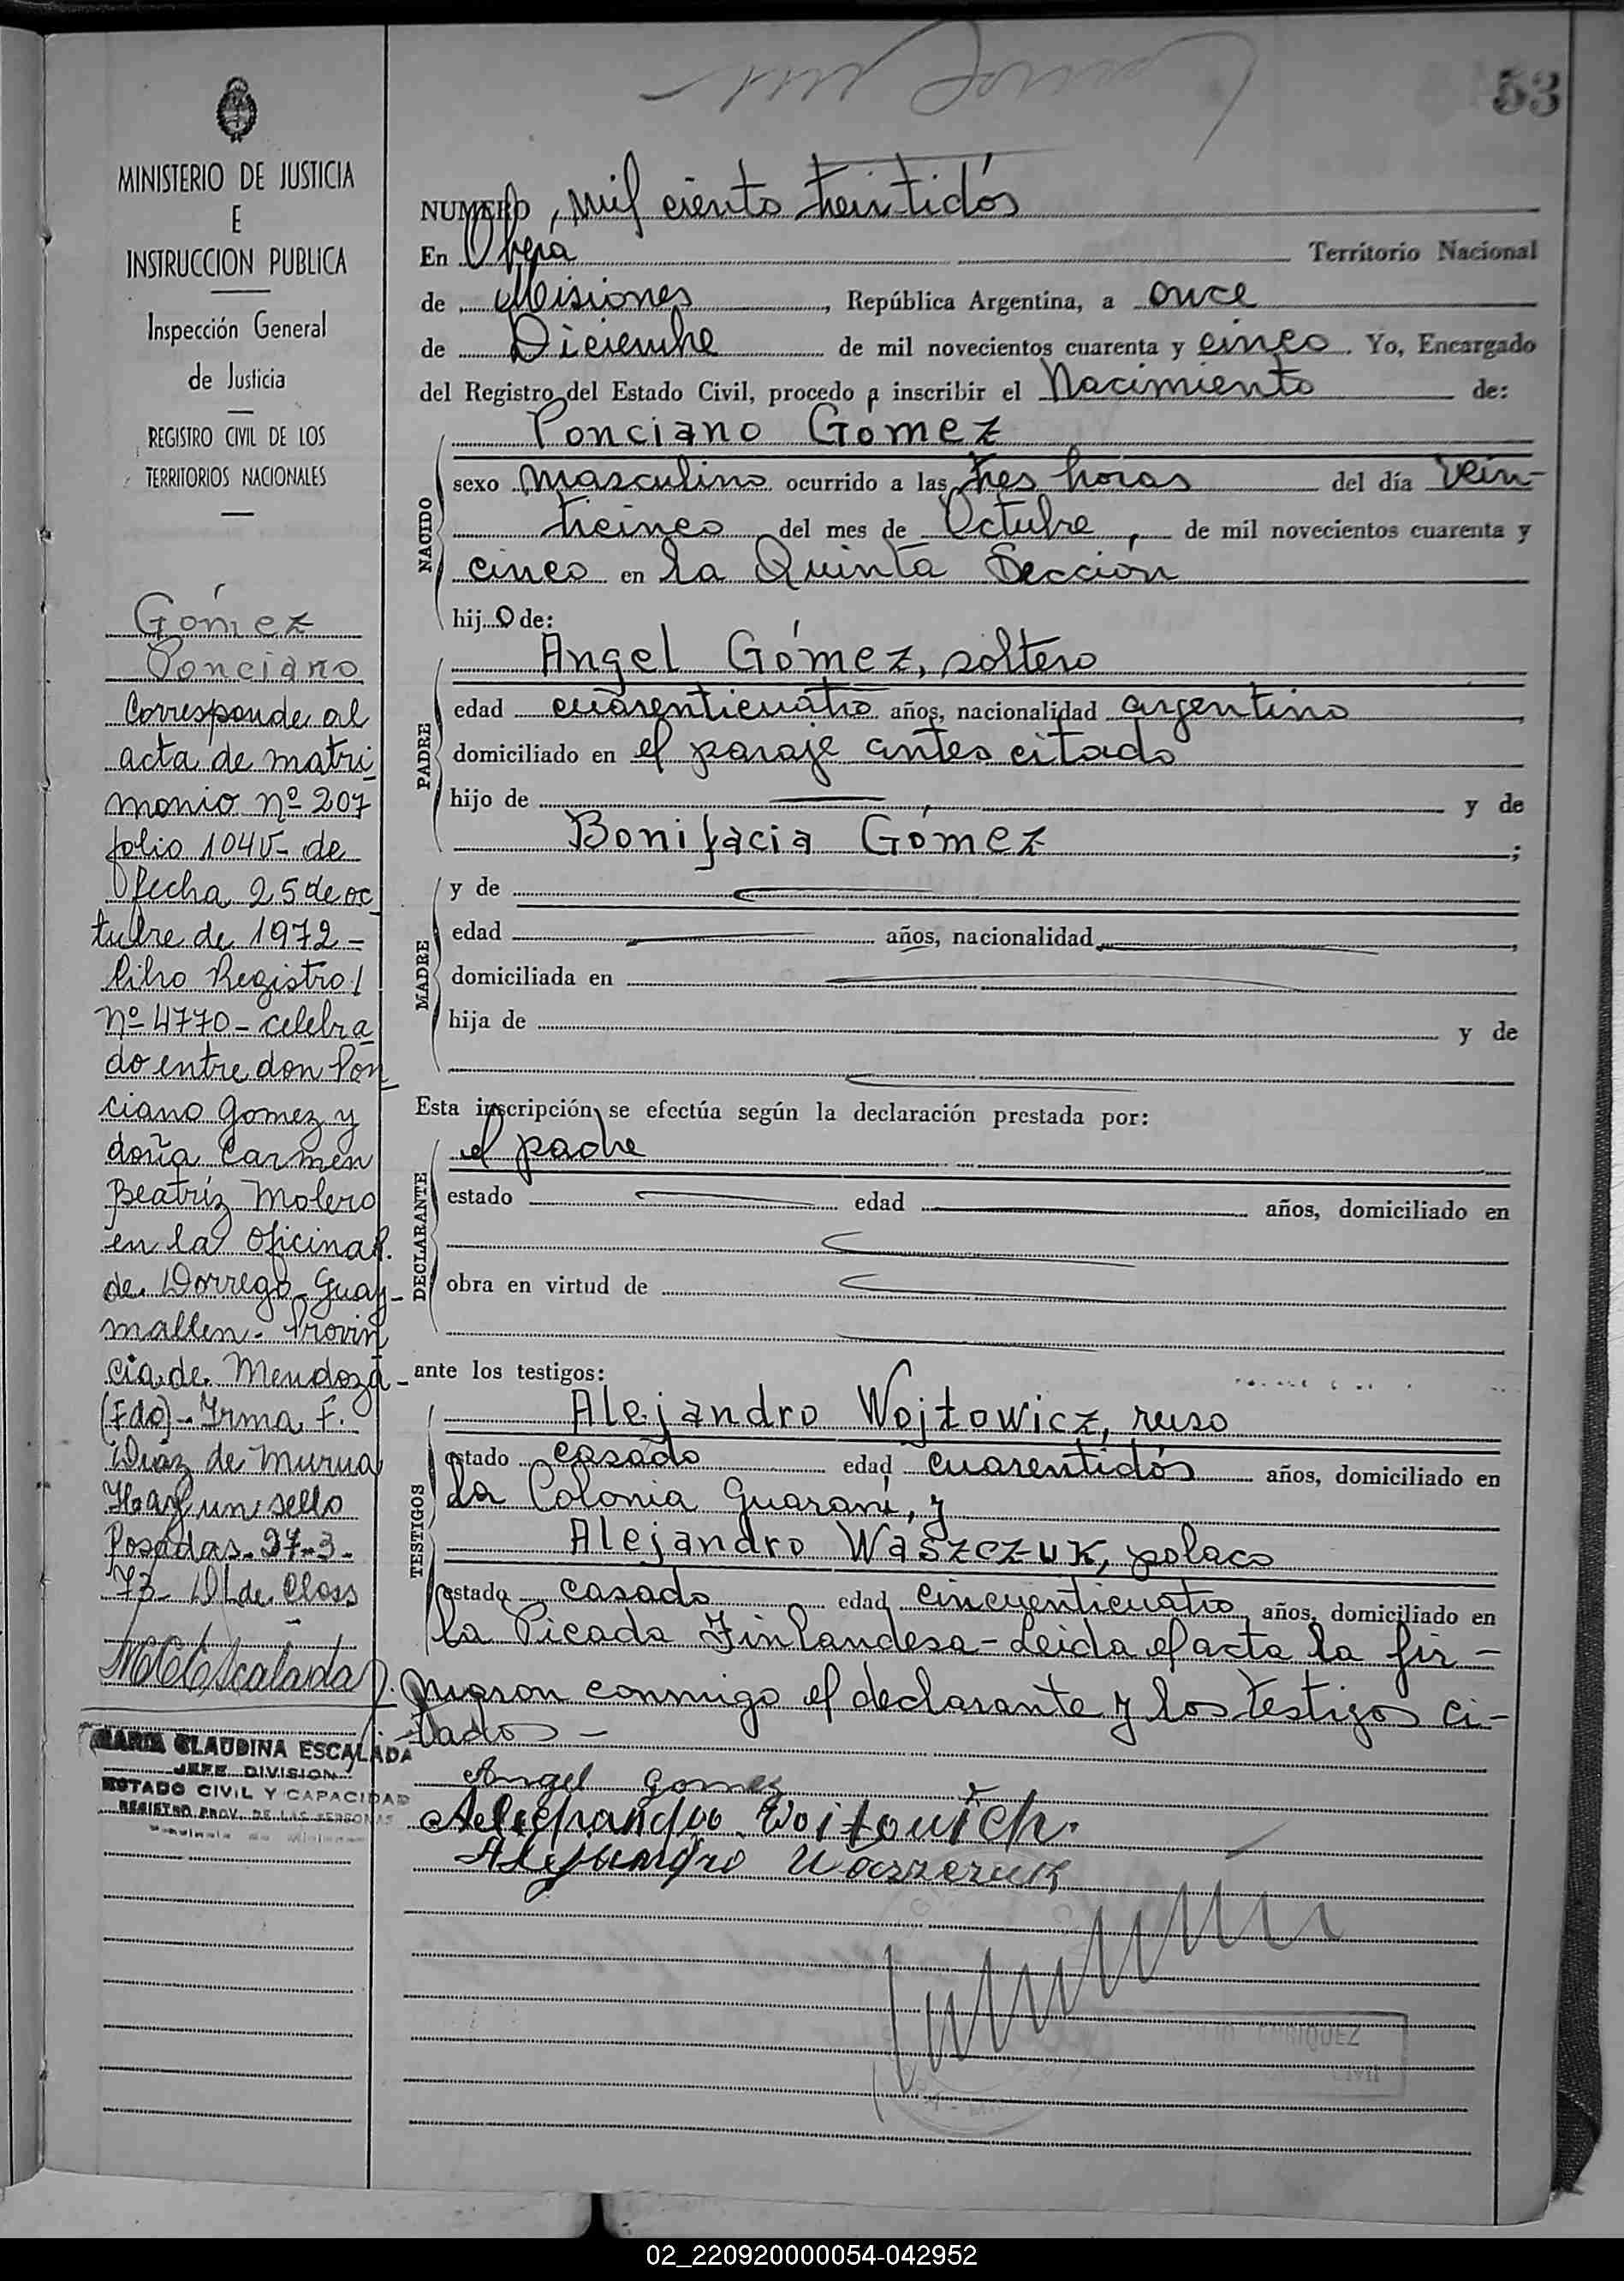 53
MINISTERIO DE JUSTICIA
E
INSTRUCCION PUBLICA
Inspección General
de Justicia
REGISTRO CIVIL DE LOS
TERRITORIOS NACIONALES
Gómez
Ponciano
Corresponde al
acta de matri
monio nº 207
folio 104v- de
fecha 25 de oc
tubre de 1972-
libro Registro/
nº 4770- celebra
do entre don Pon
ciano Gomez y
doña Carmen
Beatríz Molero
en la Oficina
de Dorrego-Guay-
mallen- Provin
cia de Mendoza-
(Fdo)- Irma F.
Diaz de Murua
Hay un sello
Posadas-27-3-
73- de Closs
MCEscalada
MARIA CLAUDINA ESCALADA
JEFE DIVISION
ESTADO CIVIL Y CAPACIDAD
REGISTRO PROV. DE LAS PERSONAS
NUMERO, mil ciento treintidós
En Oberá Territorio Nacional
de Misiones, República Argentina, a once
de Diciembre de mil novecientos cuarenta y cinco. Yo, Encargado
del Registro del Estado Civil, procedo a inscribir el Nacimiento de:
NACIDO
Ponciano Gomez
sexo masculino ocurrido a las tres horas del día vein-
ticinco del mes de Octubre, de mil novecientos cuarenta y
cinco en la Quinta Sección
hijo de:
PADRE
Angel Gómez, soltero
edad cuarenticuatro años, nacionalidad argentino
domiciliado en el paraje antes citado
hijo de y de
Bonifacia Gómez;
MADRE
y de
edad años, nacionalidad,
domiciliada en
hija de y de
Esta inscripción se efectúa según la declaración prestada por:
DECLARANTE
el padre
estado edad años, domiciliado en
obra en virtud de
ante los testigos:
TESTIGOS
Alejandro Wojtowicz, ruso
estado casado edad cuarentidós años, domiciliado en
la Colonia Guaraní, y
Alejandro Waszczuk, polaco
estado casado edad cincuenticuatro años, domiciliado en
la Picada Finlandesa-Leida el acta la fir-
maron conmigo el declarante y los testigos ci-
tados-
Angel Gomez
Woitovich.
Alejandro Waszczuk
ENRIQUEZ
CIVIL
02_220920000054-042952